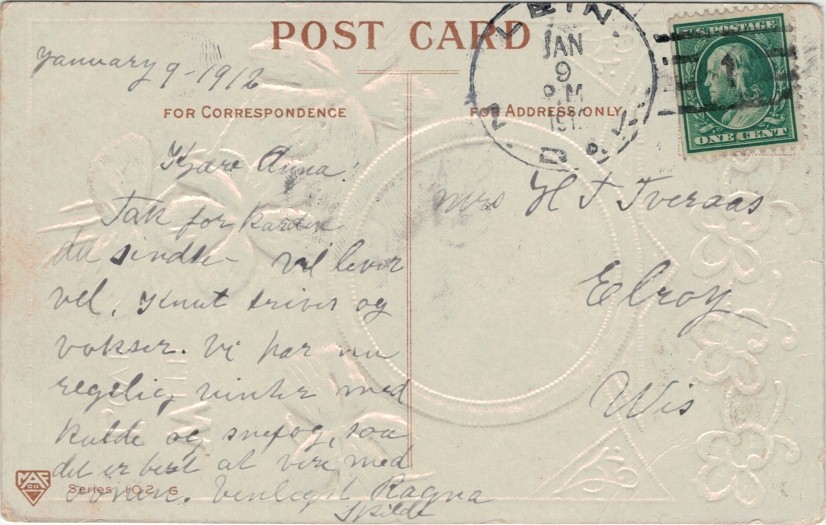 POST CARD
January 9-1912
FOR CORRESPONDENCE
FOR ADDRESS ONLY
JAN
9
P.M.
U.S. POSTAGE
1
ONE CENT
Kjære Anna!
Tak for karden
du sindte Vi lever
vel, Knut trives og
vokser. Vi har nu
regelig vinter med
kulde og snefog, saa
det er best at være med
ovnen. Venligst Ragna
Mrs H T Tveraas
Elroy
Wis
Series 102 G